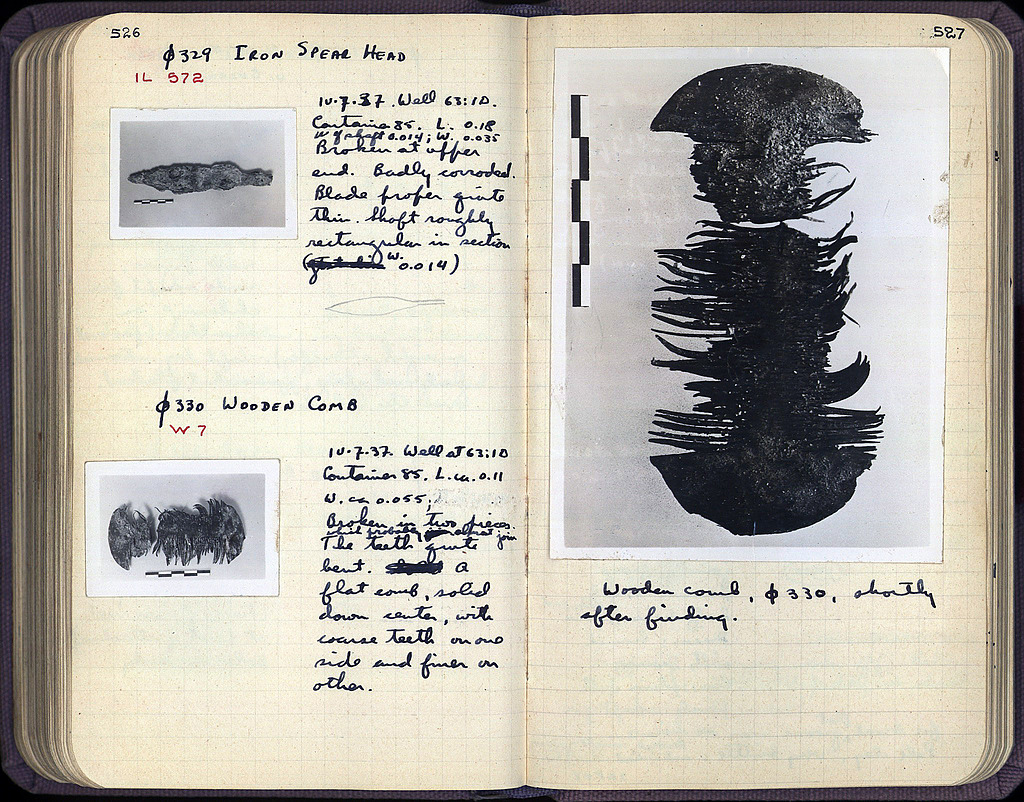 526
ϕ329 IRON SPEAR HEAD
IL 572
10.7.37. Well 63:1D.
Container 85. L. 0.18
W. of shaft 0.014; W. 0.035
Broken at upper
end. Badly corroded.
Blade proper quite
thin. Shaft roughly
rectangular in section
( W. 0.014)
ϕ330 WOODEN COMB
W 7
10.7.37. Well at 63:1D
Container 85. L. ca. 0.11
W. ca 0.055;
Broken in two pieces.
which probably almost join
The teeth quite
bent. A
flat comb, solid
down center, with
coarse teeth on one
side and finer on
other.
527
Wooden comb, ϕ330, shortly
after finding.